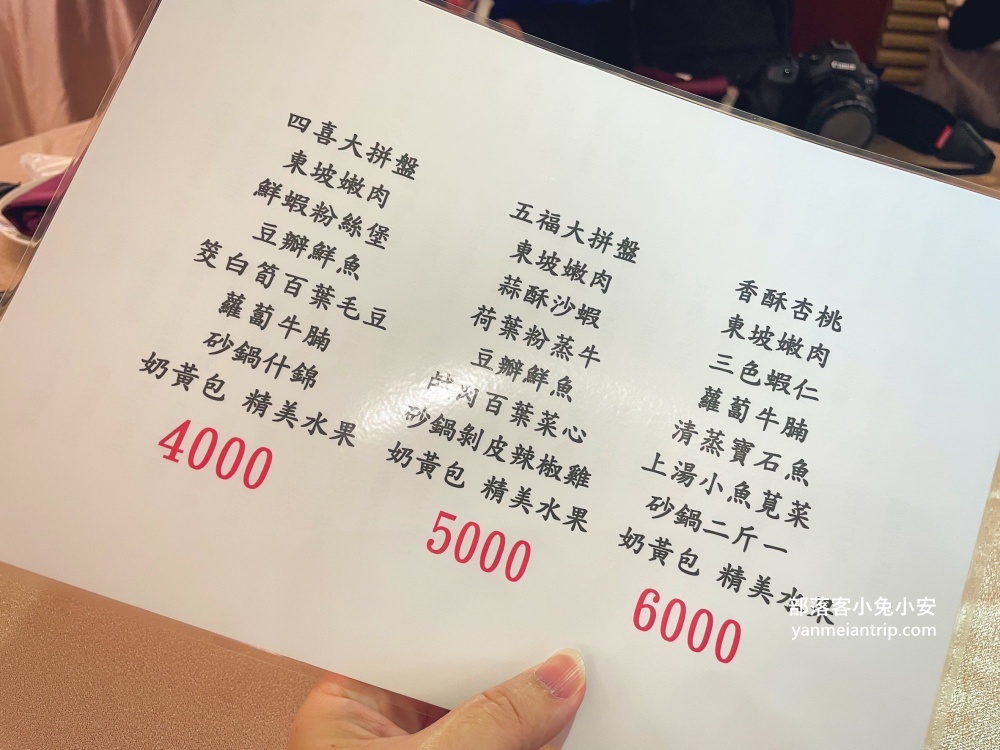 四喜大拼盤
東坡嫩肉
鮮蝦粉絲堡
豆瓣鮮魚
筊白筍百葉毛豆
蘿蔔牛腩
砂鍋什錦
奶黃包 精美水果
4000
五福大拼盤
東坡嫩肉
蒜酥沙蝦
荷葉粉蒸牛
豆瓣鮮魚
百葉菜心
砂鍋剝皮辣椒雞
奶黃包 精美水果
5000
香酥杏桃
東坡嫩肉
三色蝦仁
蘿蔔牛腩
清蒸寶石魚
上湯小魚莧菜
砂鍋二斤一
奶黃包 精美水果
6000
部落客小兔小安
yanmeiantrip.com
Canon